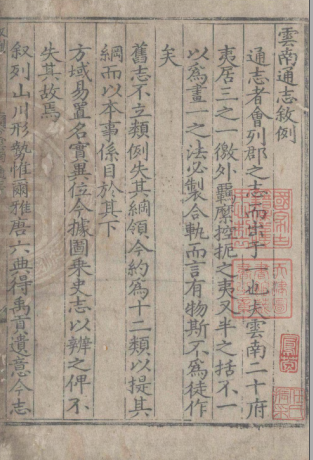 雲南通志敘例
通志者會列郡之志而成于一也夫雲南二十府
夷居三之一徼外羈縻控扼之夷又半之括不一
以為畫一之法必製合軌而言有物斯不為徒作
矣
舊志不立類例失其綱領今約為十二類以提其
綱而以本事係目於其下
方域易置名實異位今據圖乘史志以辨之俾不
失其故焉
叙列山川形勢惟爾雅唐六典得禹貢遺意今志